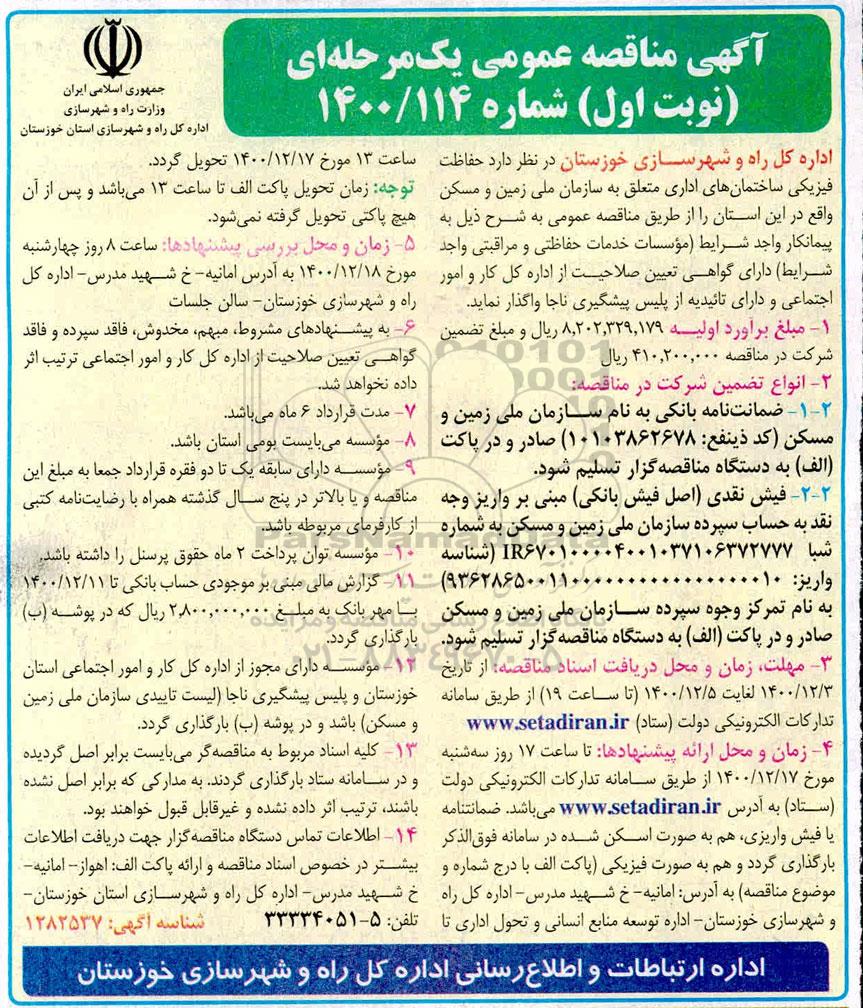 جمهوری اسلامی ایران
وزارت راه و شهرسازی
اداره کل راه و شهرسازی استان خوزستان
آگهی مناقصه عمومی یک‌مرحله‌ای
(نوبت اول) شماره ۱۴۰۰/۱۱۴
اداره کل راه و شهرسـازی خوزستان در نظر دارد حفاظت
فیزیکی ساختمان‌های اداری متعلق به سازمان ملی زمین و مسکن
واقع در این استان را از طریق مناقصه عمومی به شرح ذیل به
پیمانکار واجد شرایط (مؤسسات خدمات حفاظتی و مراقبتی واجد
شرایط) دارای گواهی تعیین صلاحیت از اداره کل کار و امور
اجتماعی و دارای تائیدیه از پلیس پیشگیری ناجا واگذار نماید.
۱- مبلغ برآورد اولیه ۸,۲۰۲,۳۲۹,۱۷۹ ریال و مبلغ تضمین
شرکت در مناقصه ۴۱۰,۲۰۰,۰۰۰ ریال
۲- انواع تضمین شرکت در مناقصه:
۲-۱- ضمانت‌نامه بانکی به نام سازمان ملی زمین و
مسکن (کد ذینفع: ۱۰۱۰۳۸۶۲۶۷۸) صادر و در پاکت
(الف) به دستگاه مناقصه‌گزار تسلیم شود.
۲-۲- فیش نقدی (اصل فیش بانکی) مبنی بر واریز وجه
نقد به حساب سپرده سازمان ملی زمین و مسکن به شماره
شبا IR۶۷۰۱۰۰۰۰۴۰۰۱۰۳۷۱۰۶۳۷۲۷۷۷ (شناسه
واریز:
به نام تمرکز وجوه سپرده سازمان ملی زمین و مسکن
صادر و در پاکت (الف) به دستگاه مناقصه‌گزار تسلیم شود.
۳- مهلت، زمان و محل دریافت اسناد مناقصه: از تاریخ
۱۴۰۰/۱۲/۳ لغایت ۱۴۰۰/۱۲/۵ (تا ساعت ۱۹) از طریق سامانه
تدارکات الکترونیکی دولت (ستاد) www.setadiran.ir
۴- زمان و محل ارائه پیشنهادها: تا ساعت ۱۷ روز سه‌شنبه
مورخ ۱۴۰۰/۱۲/۱۷ از طریق سامانه تدارکات الکترونیکی دولت
(ستاد) به آدرس www.setadiran.ir می‌باشد. ضمانتنامه
یا فیش واریزی، هم به صورت اسکن شده در سامانه فوق‌الذکر
بارگذاری گردد و هم به صورت فیزیکی (پاکت الف با درج شماره و
موضوع مناقصه) به آدرس: امانیه- خ شهید مدرس- اداره کل راه
و شهرسازی خوزستان- اداره توسعه منابع انسانی و تحول اداری تا
ساعت ۱۳ مورخ ۱۴۰۰/۱۲/۱۷ تحویل گردد.
توجه: زمان تحویل پاکت الف تا ساعت ۱۳ می‌باشد و پس از آن
هیچ پاکتی تحویل گرفته نمی‌شود.
۵- زمان و محل بررسی پیشنهادها: ساعت ۸ روز چهارشنبه
مورخ ۱۴۰۰/۱۲/۱۸ به آدرس امانیه- خ شهید مدرس- اداره کل
راه و شهرسازی خوزستان- سالن جلسات
۶- به پیشنهادهای مشروط، مبهم، مخدوش، فاقد سپرده و فاقد
گواهی تعیین صلاحیت از اداره کل کار و امور اجتماعی ترتیب اثر
داده نخواهد شد.
۷- مدت قرارداد ۶ ماه می‌باشد.
۸- مؤسسه می‌بایست بومی استان باشد.
۹- مؤسسه دارای سابقه یک تا دو فقره قرارداد جمعا به مبلغ این
مناقصه و یا بالاتر در پنج سال گذشته همراه با رضایت‌نامه کتبی
از کارفرمای مربوطه باشد.
۱۰- مؤسسه توان پرداخت ۲ ماه حقوق پرسنل را داشته باشد.
۱۱- گزارش مالی مبنی بر موجودی حساب بانکی تا ۱۴۰۰/۱۲/۱۱
با مهر بانک به مبلغ ۲,۸۰۰,۰۰۰,۰۰۰ ریال که در پوشه (ب)
بارگذاری گردد.
۱۲- مؤسسه دارای مجوز از اداره کل کار و امور اجتماعی استان
خوزستان و پلیس پیشگیری ناجا (لیست تاییدی سازمان ملی زمین
و مسکن) باشد و در پوشه (ب) بارگذاری گردد.
۱۳- کلیه اسناد مربوط به مناقصه‌گر می‌بایست برابر اصل گردیده
و در سامانه ستاد بارگذاری گردند. به مدارکی که برابر اصل نشده
باشند، ترتیب اثر داده نشده و غیرقابل قبول خواهند بود.
۱۴- اطلاعات تماس دستگاه مناقصه‌گزار جهت دریافت اطلاعات
بیشتر در خصوص اسناد مناقصه و ارائه پاکت الف: اهواز- امانیه-
خ شهید مدرس- اداره کل راه و شهرسازی استان خوزستان-
تلفن: ۵-۳۳۳۳۴۰۵۱ شناسه آگهی: ۱۲۸۲۵۳۷
اداره ارتباطات و اطلاع‌رسانی اداره کل راه و شهرسازی خوزستان
ParsNamadData